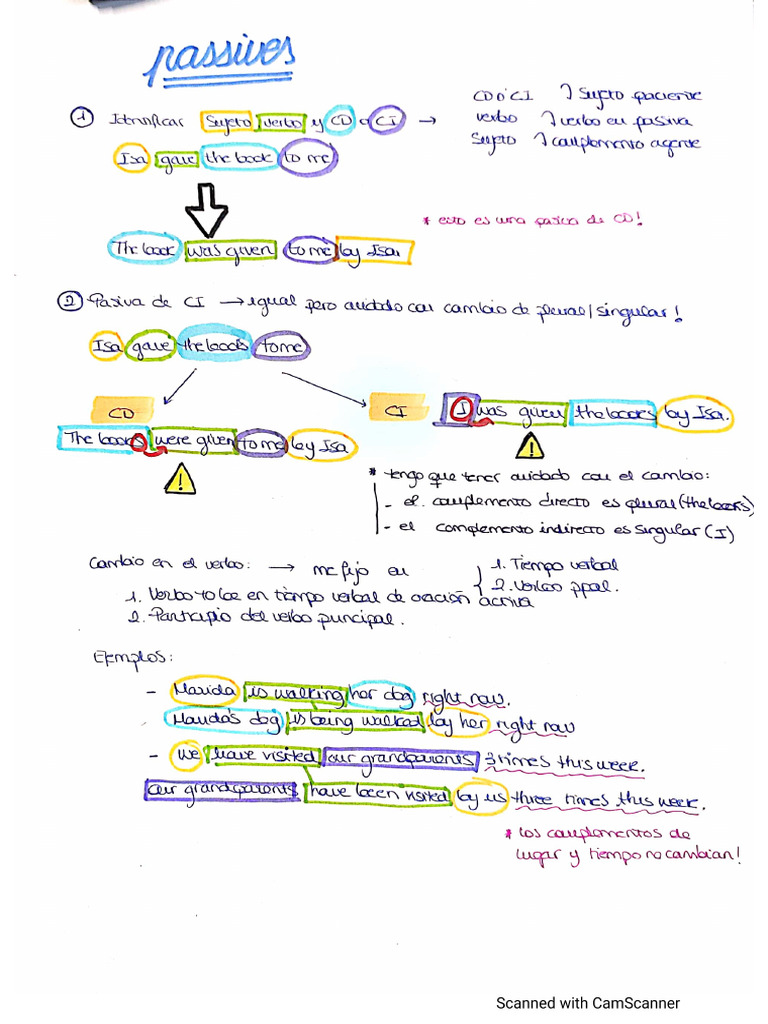 passives
① Identificar Sujeto verbo y CD o CI → CD o CI } Sujeto paciente
verbo } verbo en pasiva
Sujeto } complemento agente
Isa gave the book to me
* esto es una pasiva de CD!
The book was given to me by Isa.
② Pasiva de CI → igual pero cuidado con cambio de plural/singular!
Isa gave the books to me
CD
The books were given to me by Isa
CI
I was given the books by Isa.
* tengo que tener cuidado con el cambio:
- el complemento directo es plural (the books)
- el complemento indirecto es singular (I)
Cambio en el verbo: → me fijo en { 1. Tiempo verbal
2. Verbo ppal.
1. Verbo to be en tiempo verbal de oración activa
2. Participio del verbo principal.
Ejemplos:
- is walking her dog right now.
dog is being walked by her right now
- We have visited our grandparents 3 times this week.
our grandparents have been visited by us three times this week.
* los complementos de
lugar y tiempo no cambian!
Scanned with CamScanner